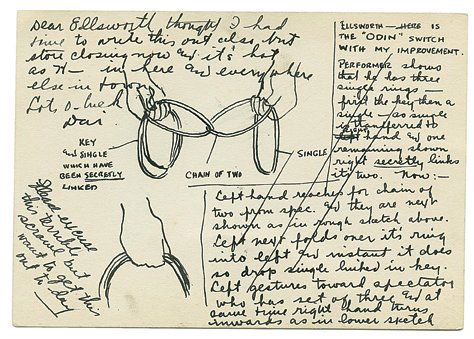 Dear Ellsworth thought I had
time to write this out also but
store closing now and it's hot
as H— in here and everywhere
else in town
Lots o luck
Dai
KEY
and SINGLE
WHICH HAVE
BEEN SECRETLY
LINKED
CHAIN OF TWO
SINGLE
Please excuse
this terrible
scrawl but
want to get this
out to-day
ELLSWORTH — HERE IS
THE "ODIN" SWITCH
WITH MY IMPROVEMENT.
PERFORMER shows
that he has three
single rings —
first the key then a
single — as single
is transferred to
hand and one
remaining shown
right secretly links
it's two. Now :—
Left hand reaches for chain of
two from spec. and they are next
shown as in rough sketch above.
Left next folds over it's ring
into left and instant it does
so drop single linked in key.
Left gestures toward spectator
who has set of three and at
same time right hand turns
inwards as in lower sketch